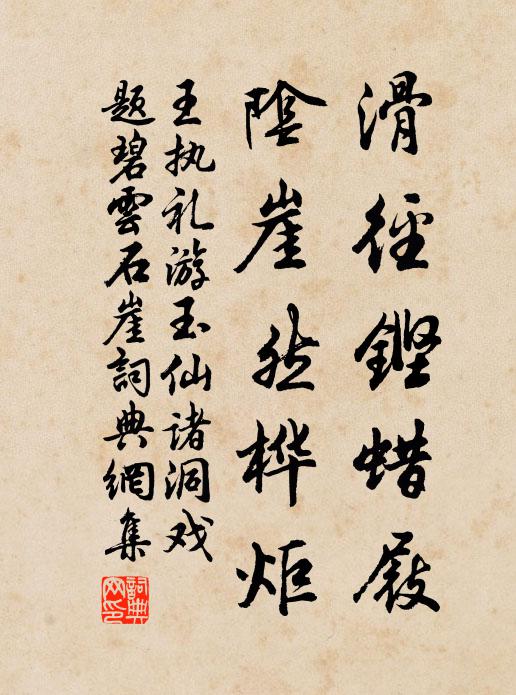 滑径鏗蜡屐
陰崖然桦炬
王执礼游玉仙诸洞戏
题碧雲石崖詞典網集
詞典网印